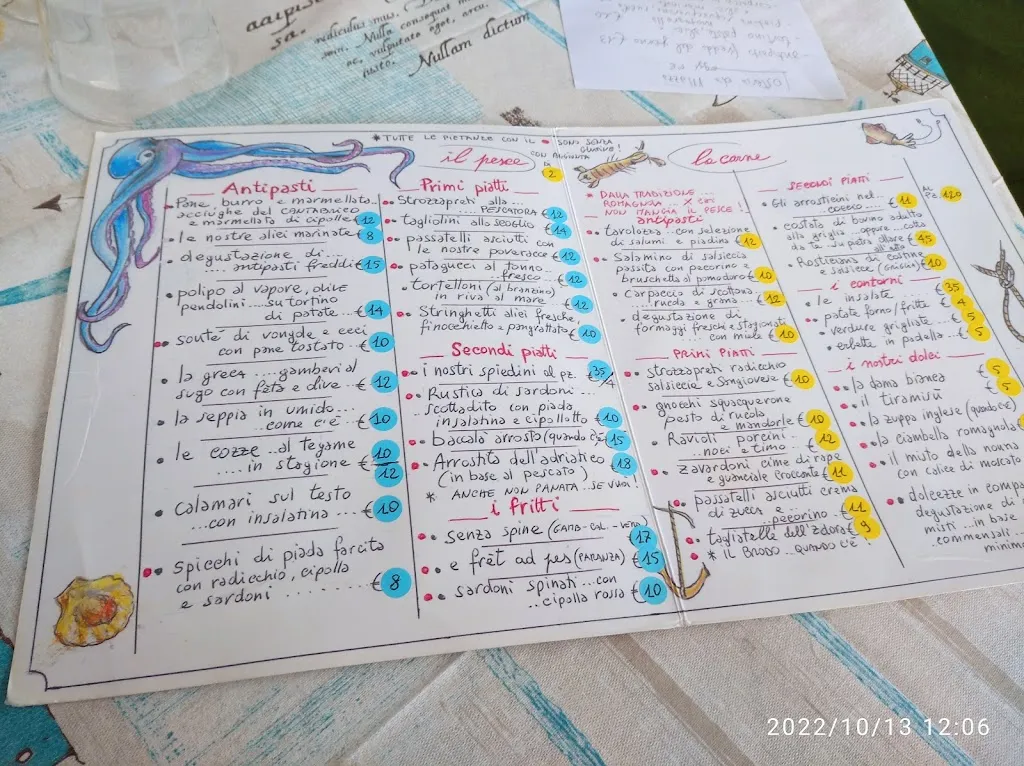 ridiculus mus.
Nulla consequat m
vulputate eget, arcu.
justo. Nullam dictum
* TUTTE LE PIETANZE CON IL • SONO SENZA GLUTINE!
CON AGGIUNTA DI 2
il pesce
Antipasti
Pane, burro e marmellata..
acciughe del CANTABRICO
e marmellata di cipolle € 12
le nostre alici marinate € 8
degustazione di...
.... antipasti freddi € 15
polipo al vapore, olive
pendolini .... su tortino
di patate ... € 14
souté di vongole e ceci
con pane tostato .. € 10
la greca .... gamberi al
sugo con feta e olive .. € 12
la seppia in umido ...
... come c'è ... € 10
le cozze .. al tegame € 10
..... in stagione € 12
calamari sul testo
... con insalatina ... € 10
spicchi di piada farcita
con radicchio, cipolla
e sardoni ........ € 8
Primi piatti
Strozzapreti alla ...
.... PESCATORA € 12
tagliolini allo scoglio € 14
passatelli asciutti con
le nostre poveracce € 12
patacucci al tonno
... fresco € 12
tortelloni (al branzino)
in riva al mare .. € 12
Stringhetti alici fresche
finocchietto e pangrattato € 10
Secondi piatti
i nostri spiedini al pz. € 3,5/4
Rustico di sardoni ...
scottadito con piada
insalatina e cipollotto € 10
baccalà arrosto (quando c'è) € 15
Arrostito dell'adriatico € 18
(in base al pescato)
* ANCHE NON PANATA ... SE VUOI!
i fritti
senza spine (GAMB-CAL.-VERD) € 17
e frët ad pes (PARANZA) € 15
sardoni spinati ... con
.. cipolla rossa € 10
la carne
* DALLA TRADIZIONE ...
ROMAGNOLA ... X CHI
NON MANGIA IL PESCE!
antipasti
tavolozza .. con selezione
di salumi e piadina € 12
Salamino di salsiccia
passita con pecorino e
bruschetta al pomodoro € 10
Carpaccio di scottona
... rucola e grana ... € 12
degustazione di
formaggi freschi e stagionati
.... con miele € 10
PRIMI PIATTI
strozzapreti radicchio
salsiccia e Sangiovese € 10
gnocchi squacquerone
pesto di rucola
e mandorle € 10
Ravioli porcini ..
.. noci e timo .. € 12
zavardoni cime di rape
e guanciale croccante € 11
passatelli asciutti crema
di zucca e ...
..... pecorino € 11
tagliatelle dell'zdora € 9
* IL BRODO ... QUANDO C'È!
SECONDI PIATTI
Gli arrosticini nel ...
.... cocco € 11
AL PZ. 1,20
costata di bovino adulto
alla griglia .. oppure .. cotta
da te su pietra ollare € 45
Rosticiana di costine
e salsicce (GRIGLIA) € 10
i contorni
le insalate ... € 3,5
patate forno/fritte € 4
verdure grigliate ... € 5
erbette in padella ... € 5
i nostri dolci
la dama bianca € 5
il tiramisù € 5
la zuppa inglese (quando c'è)
la ciambella romagnola
il misto della nonna
con calice di moscato
dolcezze in compa
degustazione di
misti ... in base
commensali ...
minimo
2022/10/13 12:06